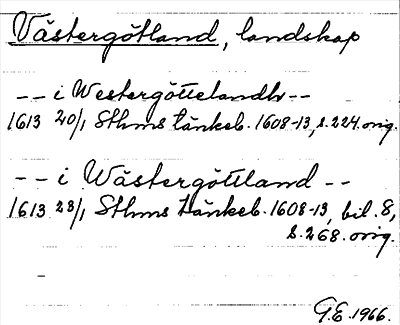 Västergötland, landskap
-- i Westergöttelandh --
1613 20/1 Sthms tänkeb. 1608-13, s. 224. orig.
-- i Wästergöttland --
1613 23/1 Sthms tänkeb. 1608-13, bil. 8,
s. 268. orig.
G.E. 1966.